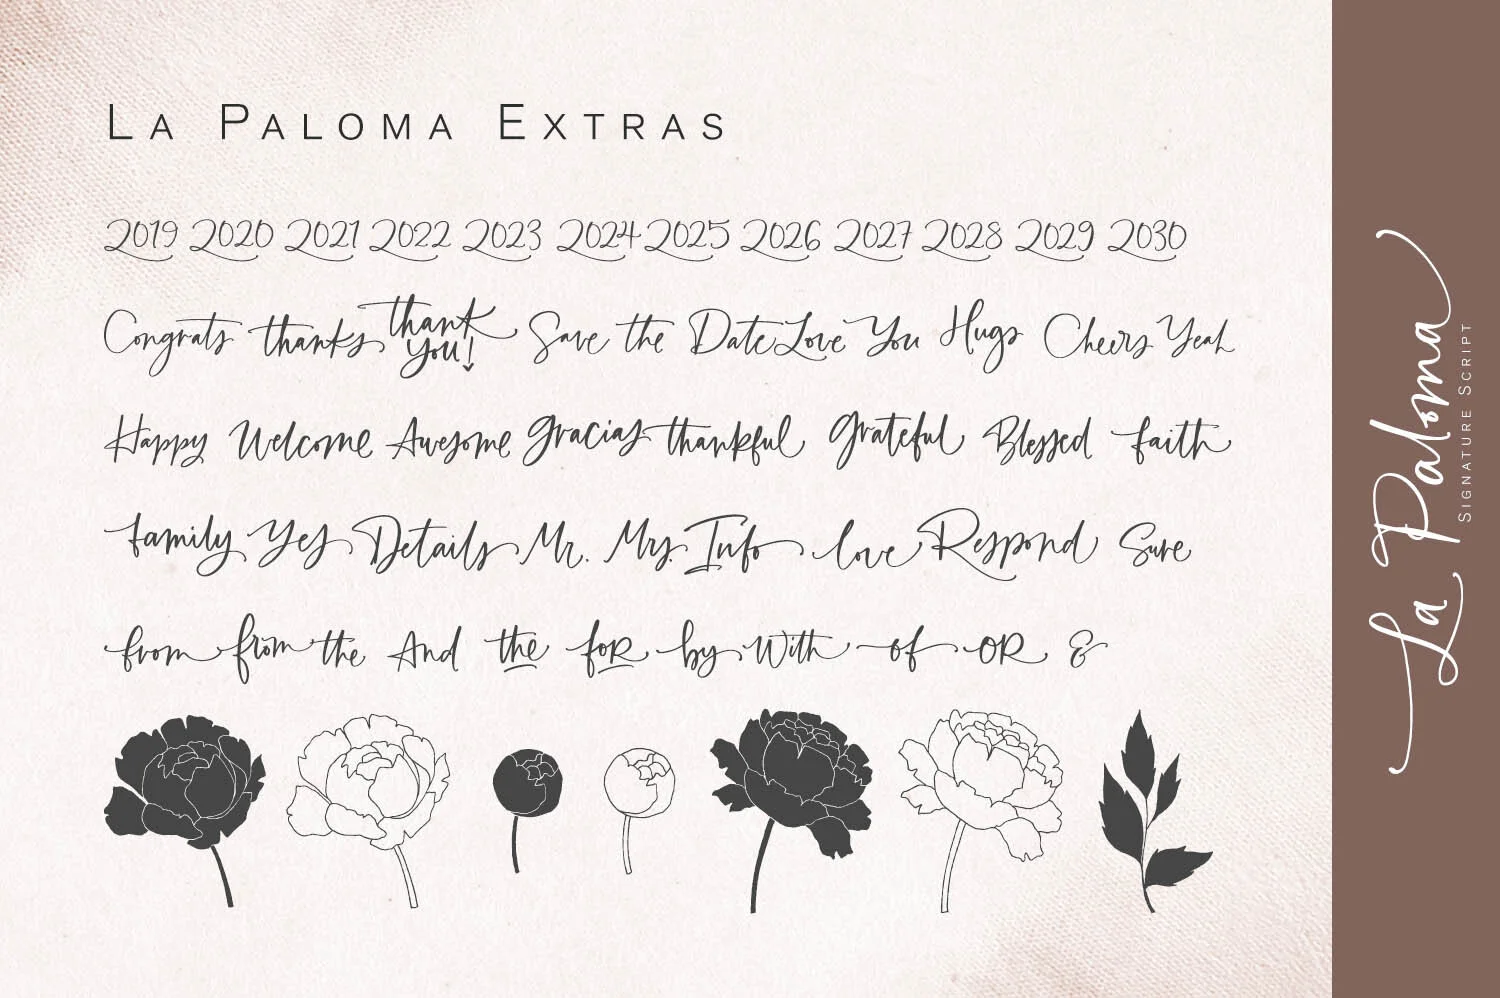 La Paloma Extras
2019 2020 2021 2022 2023 2024 2025 2026 2027 2028 2029 2030
Congrats thanks thank you! Save the Date Love You Hugs Cheers Yeah
Happy Welcome Awesome gracias thankful grateful Blessed faith
family Yes Details Mr. Mrs. Info love Respond Sure
from from the And the foR by With of OR &
La Paloma
Signature Script